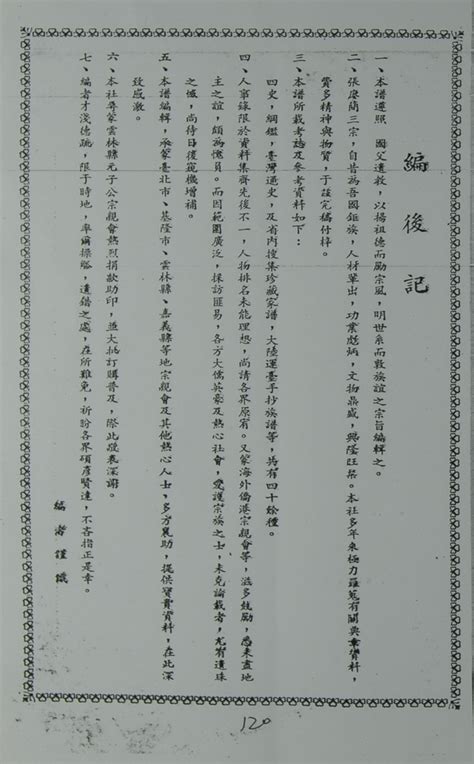 編後記
一、本譜遵照　國父遺教，以揚祖德而勵宗風，明世系而敦族誼之宗旨編輯之。
二、張廖簡三宗，自昔為吾國鉅族，人材輩出，功業彪炳，文物鼎盛，興隆旺桀。本社多年來極力羅蒐有關典章資料，
費多精神與物質，于茲完稿付梓。
三、本譜所載考誌及參考資料如下：
四史，綱鑑，臺灣通史，及省內搜集珍藏家譜，大陸運臺手抄族譜等，共有四十餘種。
四、人事錄限於資料集齊先後不一，人物排名未能理想，尚請各界原宥。又蒙海外僑港宗親會等，滋多鼓勵，悉未盡地
主之誼，頗為愧員。而因範圍廣泛，採訪匪易，各方大儒英豪及熱心社會，愛護宗族之士，未克論載者，尤有遺珠
之憾，尚待日後覓機增補。
五、本譜編輯，承蒙臺北市、基隆市、雲林縣、嘉義縣等地宗親會及其他熱心人士，多方襄助，提供寶貴資料，在此深
致感激。
六、本社辱蒙雲林縣元子公宗親會熱烈捐款助印，並大批訂購普及，際此謹表深謝。
七、編者才淺德跣，限于時地，率爾操觚，遺錯之處，在所難免，祈盼各界碩彥賢達，不吝指正是幸。
編者謹識
120